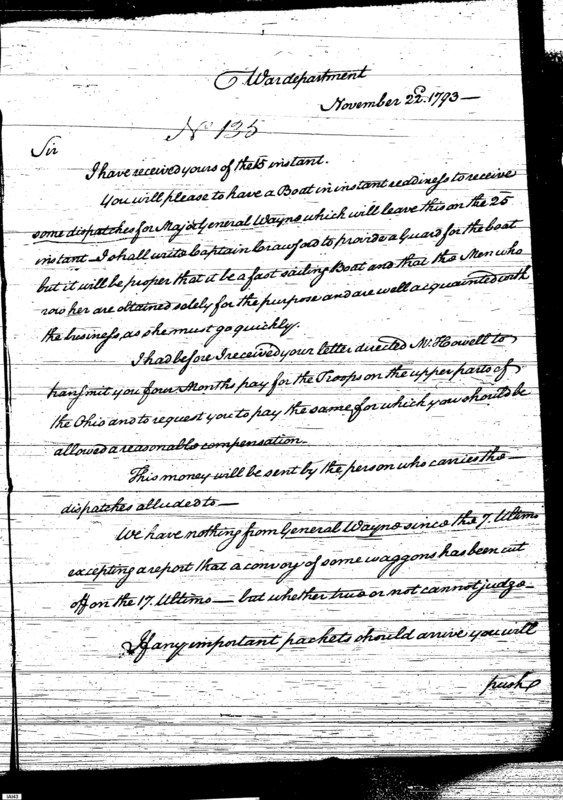 War department
November 22d. 1793—
No 135
Sir
I have received yours of the 15 instant.
You will please to have a Boat in instant readiness to receive
some dispatches for Major General Wayne which will leave this on the 25
instant—I shall write Captain Crawford to provide a Guard for the boat
but it will be proper that it be a fast sailing Boat and that the Men who
row her are obtained solely for the purpose and are well acquainted with
the business, as she must go quickly.
I had before I received your letter directed Mr. Howell to
transmit you four Months pay for the Troops on the upper parts of
the Ohio and to request you to pay the same for which you should be
allowed a reasonable compensation.
This money will be sent by the person who carries the—
dispatches alluded to—
We have nothing from General Wayne since the 7. Ultimo
excepting a report that a convoy of some waggons has been cut
off on the 17. Ultimo—but whether true or not cannot judge—
If any important packets should arrive you will
push